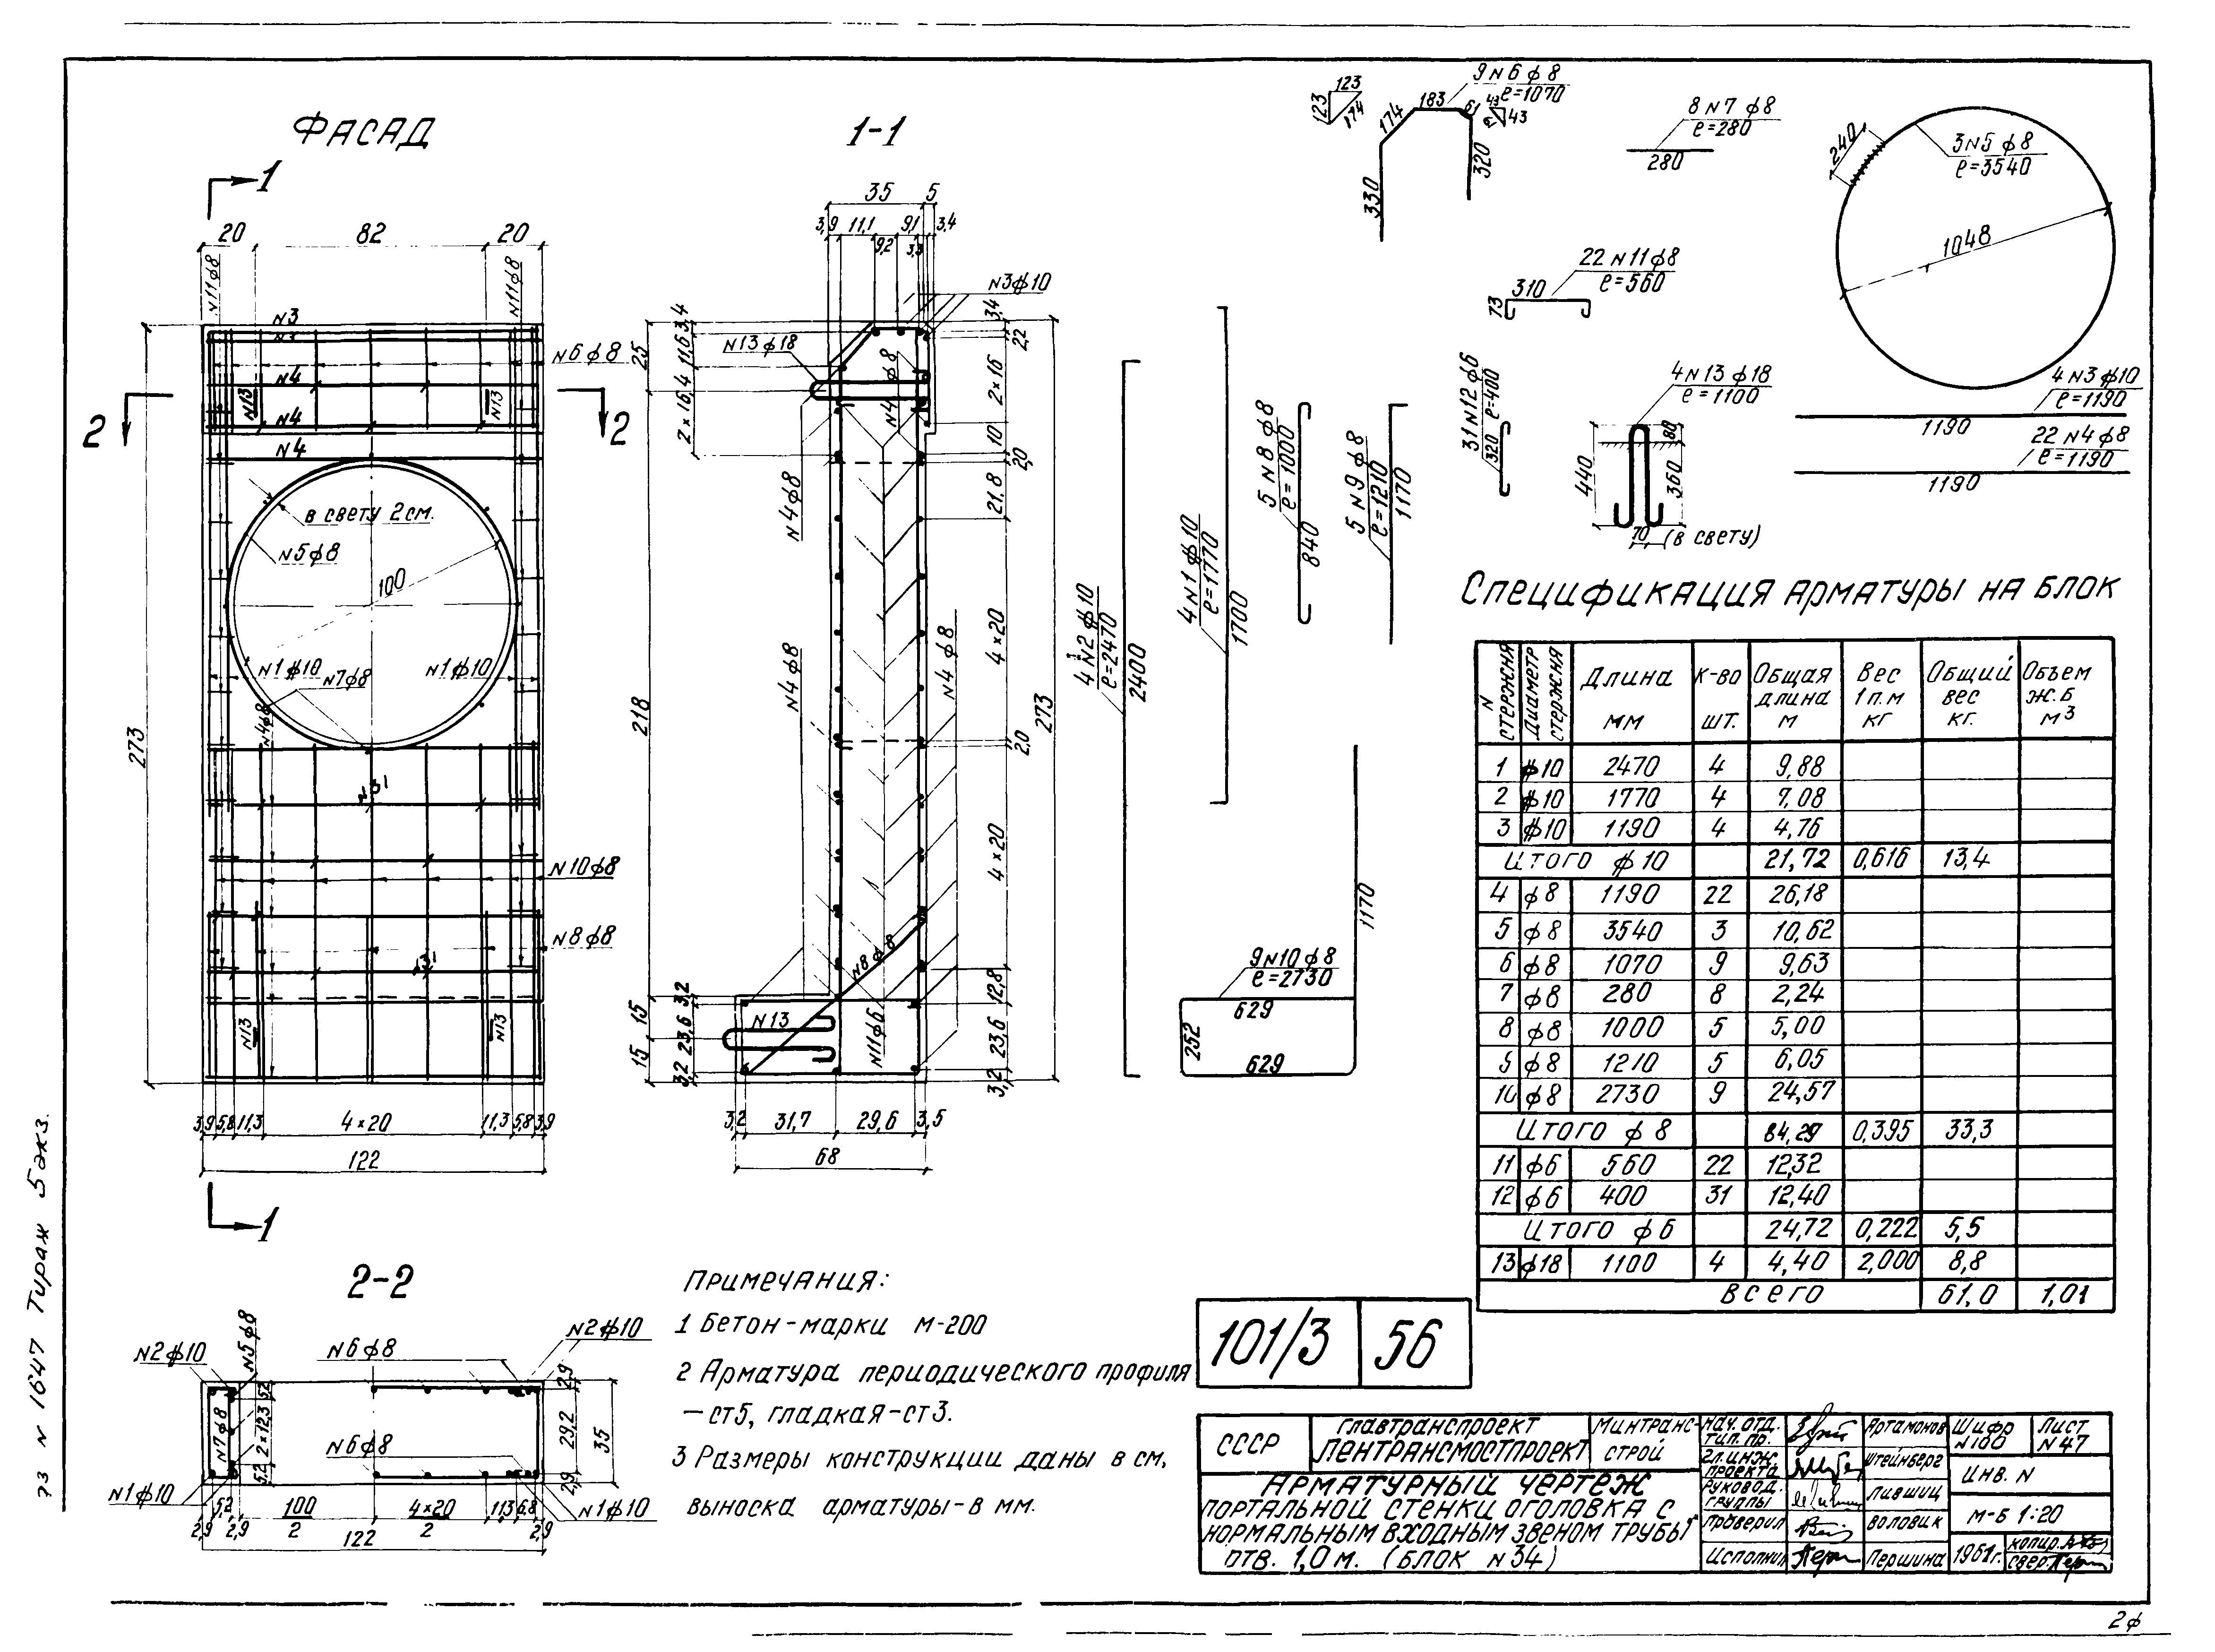 ФАСАД
1
20 82 20
N11ϕ8
N11ϕ8
N3
N6ϕ8
N4
N13
N13
N4
N4
2
2
в свету 2см.
N5ϕ8
100
N1⌽10
N7ϕ8
N1⌽10
N4ϕ8
273
N10ϕ8
N8ϕ8
N13
N13
3,9 5,8 11,3 4×20 11,3 5,8 3,9
122
1
1-1
35 5
3,9 11,1 9,1 3,4
9,2 3,3
N3⌽10
N13ϕ18
3,4
11,6
25
4
2×16
N4ϕ8
N4ϕ8
3,4
2,2
2×16
10
2,0
21,8
4×20
2,0
4×20
12,8
23,6
3,2
273
218
N4ϕ8
N4ϕ8
N8ϕ8
15
15
3,2
23,6
3,2
N13
N11ϕ6
3,2 31,7 29,6 3,5
68
2-2
N2⌽10
N5ϕ8
N6ϕ8
N2⌽10
N7ϕ8
5,2
2×12,3
5,2
N6ϕ8
2,9
29,2
2,9
35
N1⌽10
N1⌽10
5,2 100/2 4×20/2 11,3 6,8
2,9 2,9 2,9
122
123
123
174
9N6ϕ8
ℓ=1070
174
183
61
43
43
330
320
8N7ϕ8
ℓ=280
280
240
3N5ϕ8
ℓ=3540
1048
22N11ϕ8
ℓ=560
310
73
31N12ϕ6
ℓ=400
320
4N13ϕ18
ℓ=1100
440
80
360
70 (в свету)
4N3⌽10
ℓ=1190
1190
22N4ϕ8
ℓ=1190
1190
4N2⌽10
ℓ=2470
2400
4N1⌽10
ℓ=1770
1700
5N8ϕ8
ℓ=1000
840
5N9ϕ8
ℓ=1210
1170
9N10ϕ8
ℓ=2730
1170
629
252
629
Спецификация арматуры на блок
N стержня Диаметр стержня Длина мм К-во шт. Общая длина м Вес 1п.м кг Общий вес кг. Объем ж.б м3
1 ⌽10 2470 4 9,88
2 ⌽10 1770 4 7,08
3 ⌽10 1190 4 4,76
Итого ⌽10 21,72 0,616 13,4
4 ϕ8 1190 22 26,18
5 ϕ8 3540 3 10,62
6 ϕ8 1070 9 9,63
7 ϕ8 280 8 2,24
8 ϕ8 1000 5 5,00
9 ϕ8 1210 5 6,05
10 ϕ8 2730 9 24,57
Итого ϕ8 84,29 0,395 33,3
11 ϕ6 560 22 12,32
12 ϕ6 400 31 12,40
Итого ϕ6 24,72 0,222 5,5
13 ϕ18 1100 4 4,40 2,000 8,8
Всего 61,0 1,01
Примечания:
1 Бетон-марки М-200
2 Арматура периодического профиля
-ст5, гладкая-ст3.
3 Размеры конструкции даны в см,
выноска арматуры-в мм.
101/3 56
СССР
Главтранспроект
Лентрансмостпроект
Минтрансстрой
Арматурный чертеж
портальной стенки оголовка с
нормальным входным звеном трубы
отв. 1,0 м. (блок N34)
Нач. отд. тип. пр. Артамонов
Гл. инж. проекта Штейнберг
Руковод. группы Лившиц
Проверил Воловик
Исполнил Першина
Шифр N180
Лист N47
Инв. N
М-б 1:20
1961г.
копир.
свер.
N 1647 Тираж 5 экз.
2ф